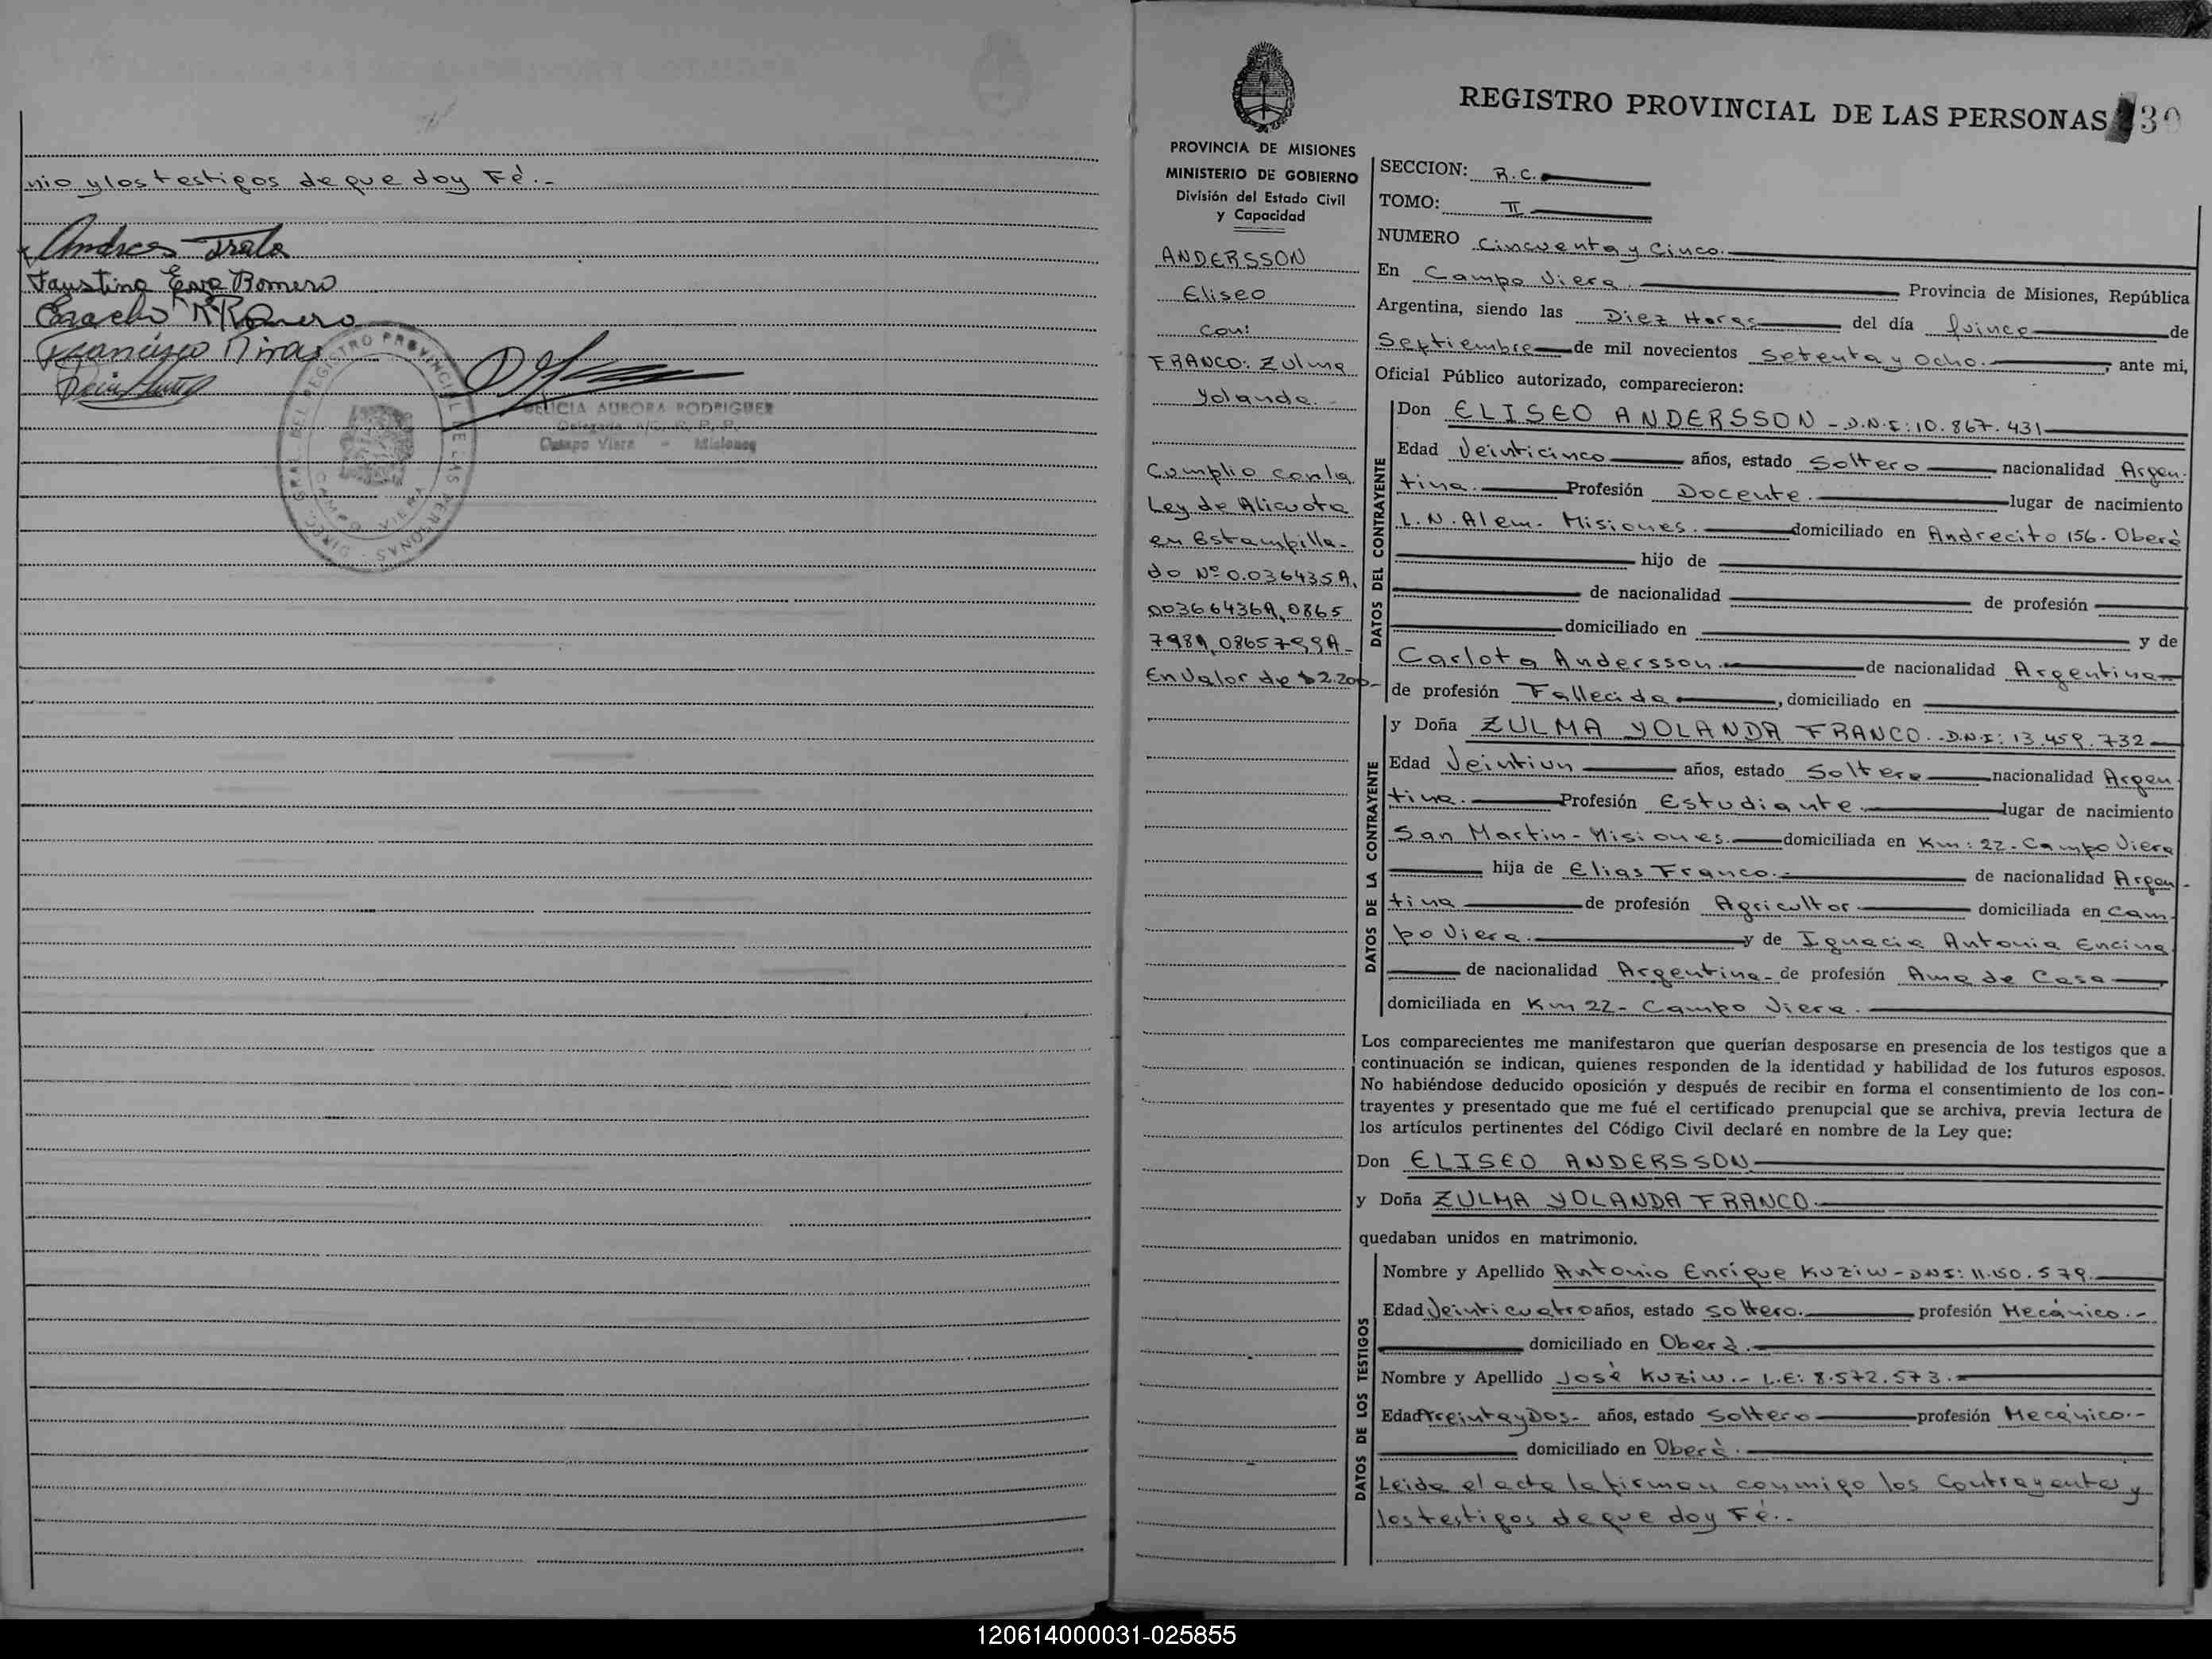 nio y los testigos de que doy Fé.-
Faustina Eva Romero
DIREC. GRAL. DEL REGISTRO PROVINCIAL DE LAS PERSONAS
CAMPO VIERA
DELICIA AURORA RODRIGUEZ
Campo Viera - Misiones
PROVINCIA DE MISIONES
MINISTERIO DE GOBIERNO
División del Estado Civil
y Capacidad
ANDERSSON
Eliseo
Con:
FRANCO: Zulma
Yolanda.-
Cumplio con la
Ley de Alicuota
en Estampilla-
do Nº 0.036435A,
0865
798A, 0865799A-
En Valor de $2.200-
REGISTRO PROVINCIAL DE LAS PERSONAS 30
SECCION: R.C.
TOMO: II
NUMERO Cincuenta y Cinco.
En Campo Viera. Provincia de Misiones, República
Argentina, siendo las Diez Horas del día quince de
Septiembre de mil novecientos Setenta y Ocho. , ante mi,
Oficial Público autorizado, comparecieron:
DATOS DEL CONTRAYENTE
Don ELISEO ANDERSSON - D.N.I: 10.867.431
Edad Veinticinco años, estado Soltero nacionalidad Argen-
tina. Profesión Docente. lugar de nacimiento
L.N.Alem- Misiones. domiciliado en Andrecito 156- Oberà
hijo de
de nacionalidad de profesión
domiciliado en y de
Carlota Andersson. de nacionalidad Argentina
de profesión Fallecida , domiciliado en
DATOS DE LA CONTRAYENTE
y Doña ZULMA YOLANDA FRANCO.- D.N.I: 13.459.732
Edad Veintiun años, estado Soltera nacionalidad Argen
tina. Profesión Estudiante. lugar de nacimiento
San Martin - Misiones. domiciliada en Km: 22- Campo Viera
hija de Elias Franco.- de nacionalidad Argen-
tina de profesión Agricultor domiciliada en Cam
po Viera. y de Ignacia Antonia Encina
de nacionalidad Argentina- de profesión Ama de Casa ,
domiciliada en Km 22- Campo Viera.
Los comparecientes me manifestaron que querían desposarse en presencia de los testigos que a
continuación se indican, quienes responden de la identidad y habilidad de los futuros esposos.
No habiéndose deducido oposición y después de recibir en forma el consentimiento de los con-
trayentes y presentado que me fué el certificado prenupcial que se archiva, previa lectura de
los artículos pertinentes del Código Civil declaré en nombre de la Ley que:
Don ELISEO ANDERSSON
y Doña ZULMA YOLANDA FRANCO.
quedaban unidos en matrimonio.
DATOS DE LOS TESTIGOS
Nombre y Apellido Antonio Enrique Kuziw - DNI: 11.150.579.
Edad Veinticuatro años, estado soltero. profesión Mecánico.-
domiciliado en Oberà.
Nombre y Apellido Josè Kuziw.- L.E: 8.572.573.-
Edad Treinta y Dos- años, estado Soltero profesión Mecánico.-
domiciliado en Oberà.
Leida el acta la firman conmigo los Contrayentes y
los testigos de que doy Fé.-
120614000031-025855